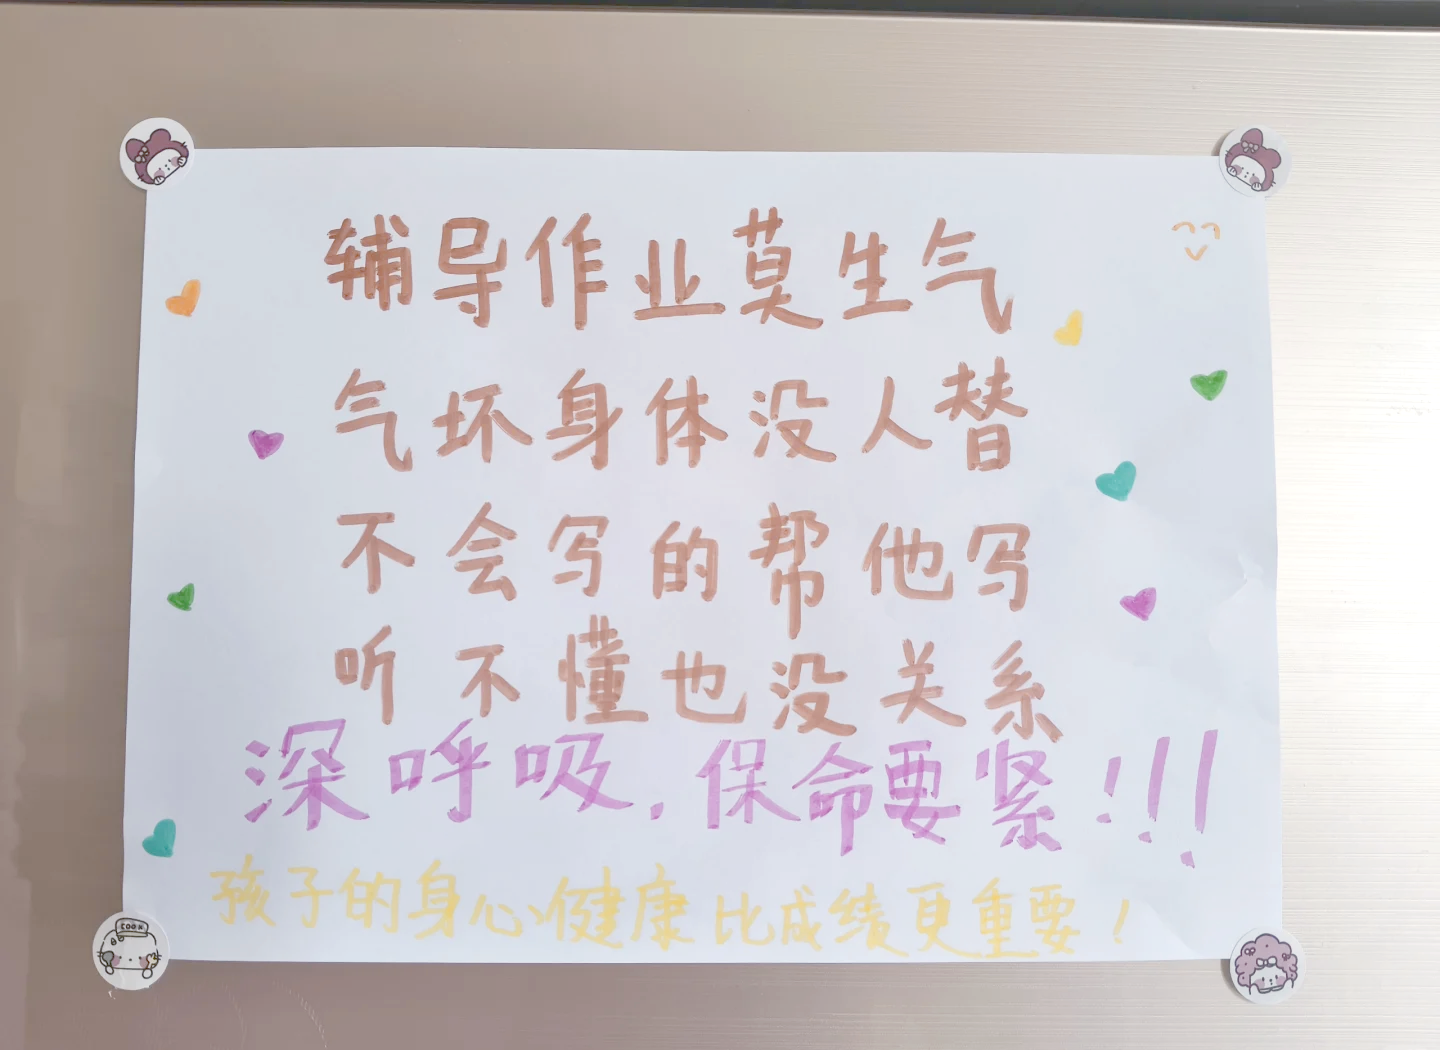 辅导作业莫生气
气坏身体没人替
不会写的帮他写
听不懂也没关系
深呼吸,保命要紧!!!
孩子的身心健康比成绩更重要!
COOK